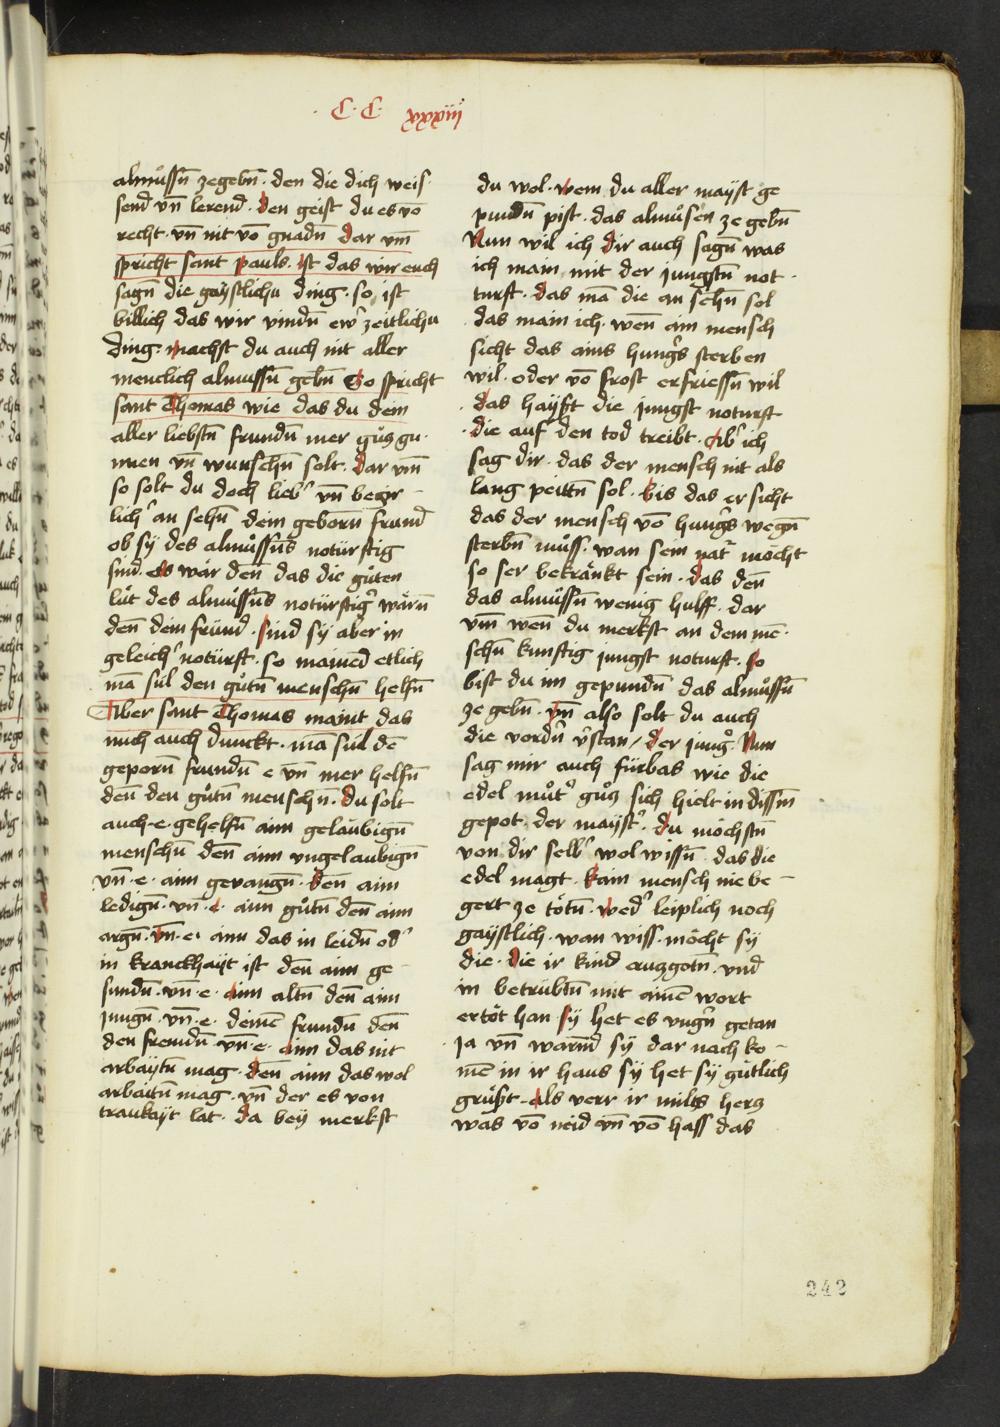 ·C·C· xxxiij
almůssn̄ zegebn̄· den die dich weis·
send vn̄ lerend· den geist du es vō
recht· vn̄ nit vō gnadn̄ dar vm̄
spricht sant pauls· ist das wir euch
sagn̄ die gaystlichn ding· so ist
billich das wir vindn̄ ew̓ zeitlichn
ding· machst du auch nit aller
menclich almussn̄ gebn̄ So spricht
sant Thomas wie das du dein
aller liebstn̄ frundn̄ mer gůz gu·
nnen vn̄ wunschn̄ solt· dar vm̄
so solt du doch lieb̓ vn̄ begir-
lich̓ an sehn̄ dein geborn̄ frund
ob sy des almůssn̄s notürftig
sind· es wär den̄ das die gůten
lüt des almůssn̄s notürftig̓ wärn̄
den̄ dein fründ· sind sy aber in
geleich̓ notürft· so mained etlich
mā sül den gůtn̄ menschn̄ helfn̄
Aber sant Thomas maint das
mich auch dunckt· mā sül dē
geporn̄ frundn̄ e vn̄ mer helfn̄
den̄ den gůtn̄ menschn̄· du solt
auch·e·gehelfn̄ ainn gelaubign̄
menschn̄ den̄ ainn vngelaubign̄
vn̄·e· ainn gevangn̄· den̄ ainn
ledign̄· vn̄·e· ainn gůtn̄ den̄ ainn
argn̄· vn̄·e· ainn das in leidn̄ od̓
in kranckhayt ist den̄ ainn ge-
sundn̄· vn̄·e· ainn altn̄ den̄ ainn
jungn̄· vn̄·e· deinē frundn̄ den̄
den fremdn̄· vn̄·e· ainn das nit
arbaytn̄ mag· den̄ ainn das wol
arbaitn̄ mag· vn̄ der es von
traukayt lat· da bey merkst
du wol· wem du aller mayst ge
pundn̄ pist· das almůsen ze gebn̄
Nun wil ich dir auch sagn̄ was
ich main mit der jungstn̄ not·
turft· das mā die an sehn̄ sol
das main ich· wen̄ ain mensch
sicht das ains hung̓s sterben
wil· oder vō frost erfriessn̄ wil
das hayst die jungst noturft
die auf den tod treibt· Ab̓ ich
sag dir· das der mensch nit als
lang peittn̄ sol· bis das er sicht
das der mensch vō hung̓s wegn̄
sterbn̄ můss· wan sein nat̓ möcht
so ser bekränkt sein· das den̄
das almůssn̄ wenig hulff· dar
vm̄ wen̄ du merkst an dem mē·
schn̄ kunftig jungst noturft· so
bist du im gepundn̄ das almůssn̄
ze gebn̄· vn̄ also solt du auch
die vordn̄ v̓stan/ der jung̊ Nun
sag mir auch fürbas wie die
edel můt̓ gůz sich hielt in dissm̄
gepot· der mayst̓· du möchstn̄
von dir selb̓ wol wissn̄ das die
edel magt· kain mensch nie be-
gert ze tötn̄· wed̓ leiplich noch
gaystlich· wan wiss· möcht sy
die· die ir kind cruzgotn̄· vnd
in betrübtn̄ mit ainē wort
ertöt han· sy het es vngn̄ getan
ja vn̄ warnd sy dar nach ko-
mē in ir haus sy het sy gütlich
grüßt· als verr ir miltz herz
was vō neid vn̄ vō hass das
242